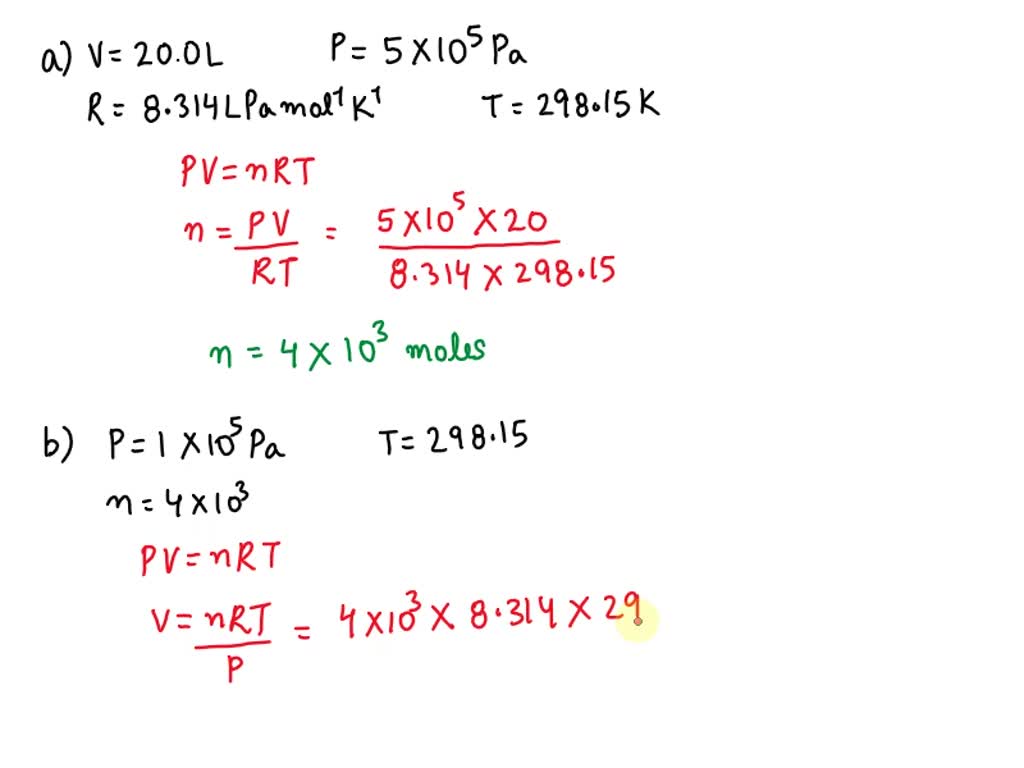 a) V = 20.0L P = 5 × 10⁵ Pa
R = 8.314 L Pa mol⁻¹ K⁻¹ T = 298.15 K
PV = nRT
n = PV / RT = 5 × 10⁵ × 20 / 8.314 × 298.15
n = 4 × 10³ moles
b) P = 1 × 10⁵ Pa T = 298.15
n = 4 × 10³
PV = nRT
V = nRT / P = 4 × 10³ × 8.314 × 29